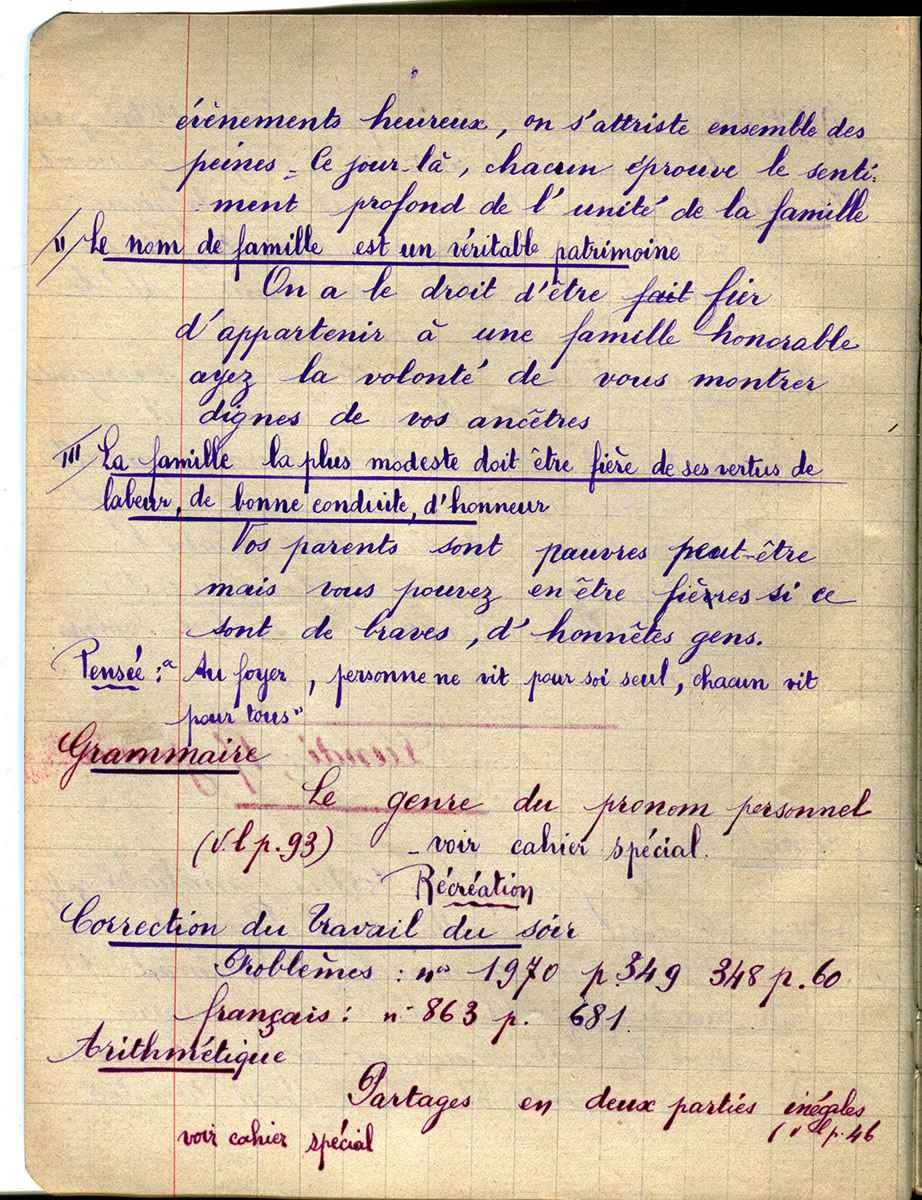 évènements heureux, on s'attriste ensemble des
peines - Ce jour-là, chacun éprouve le senti-
-ment profond de l'unité de la famille
II/ Le nom de famille est un véritable patrimoine
On a le droit d'être fait fier
d'appartenir à une famille honorable
ayez la volonté de vous montrer
dignes de vos ancêtres
III/ La famille la plus modeste doit être fière de ses vertus de
labeur, de bonne conduite, d'honneur
Vos parents sont pauvres peut-être
mais vous pouvez en être fières si ce
sont de braves, d'honnêtes gens.
Pensée : "Au foyer, personne ne vit pour soi seul, chacun vit
pour tous"
Grammaire
Le genre du pronom personnel
(v.l p.93) - voir cahier spécial.
Récréation
Correction du Travail du soir
Problèmes : nos 1970 p.349 348 p.60
français : n° 863 p. 681
Arithmétique
Partages en deux parties inégales
(v l p.46
voir cahier spécial